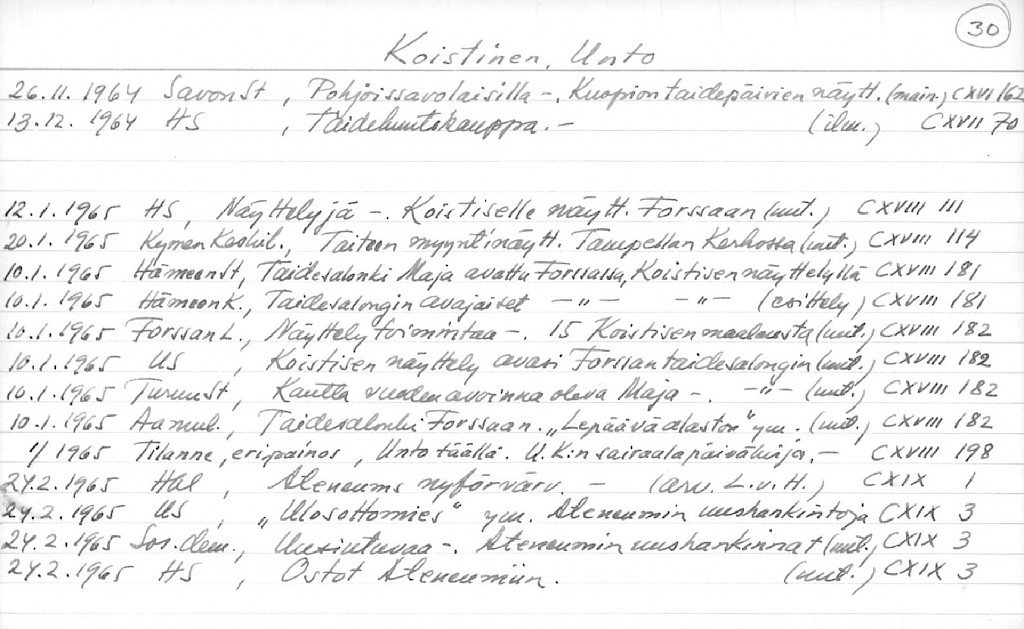 30
Koistinen, Unto
26.11.1964 SavonSt, Pohjoissavolaisilla -. Kuopion taidepäivien näytt. (main.) CXVI 162
13.12.1964 HS, Taidehuutokauppa. - (ilm.) CXVII 70
12.1.1965 HS, Näyttelyjä -. Koistiselle näytt. Forssaan (uut.) CXVIII 111
20.1.1965 Kymen Keskil., Taiteen myyntinäytt. Tampellan Kerhossa (uut.) CXVIII 114
10.1.1965 HämeenSt, Taidesalonki Maja avattu Forssassa, Koistisen näyttelyllä CXVIII 181
10.1.1965 HämeenK., Taidesalongin avajaiset -"- -"- (esittely) CXVIII 181
10.1.1965 ForssanL., Näyttelytoimintaa -. 15 Koistisen maalausta (uut.) CXVIII 182
10.1.1965 US, Koistisen näyttely avasi Forssan taidesalongin (uut.) CXVIII 182
10.1.1965 TurunSt, Kautta vuoden avoinna oleva Maja -. -"- (uut.) CXVIII 182
10.1.1965 Aamul., Taidesalonki Forssaan. „Lepäävä alaston" ym. (uut.) CXVIII 182
1/1965 Tilanne, eripainos, Unto täällä. U.K:n sairaalapäiväkirja. - CXVIII 198
24.2.1965 Hbl, Ateneums nyförvärv. - (arv. L.v.H.) CXIX 1
24.2.1965 US, „Ulosottomies" ym. Ateneumin uushankintoja CXIX 3
24.2.1965 Sos.dem., -. Ateneumin uushankinnat (uut.) CXIX 3
24.2.1965 HS, Ostot Ateneumiin. (uut.) CXIX 3